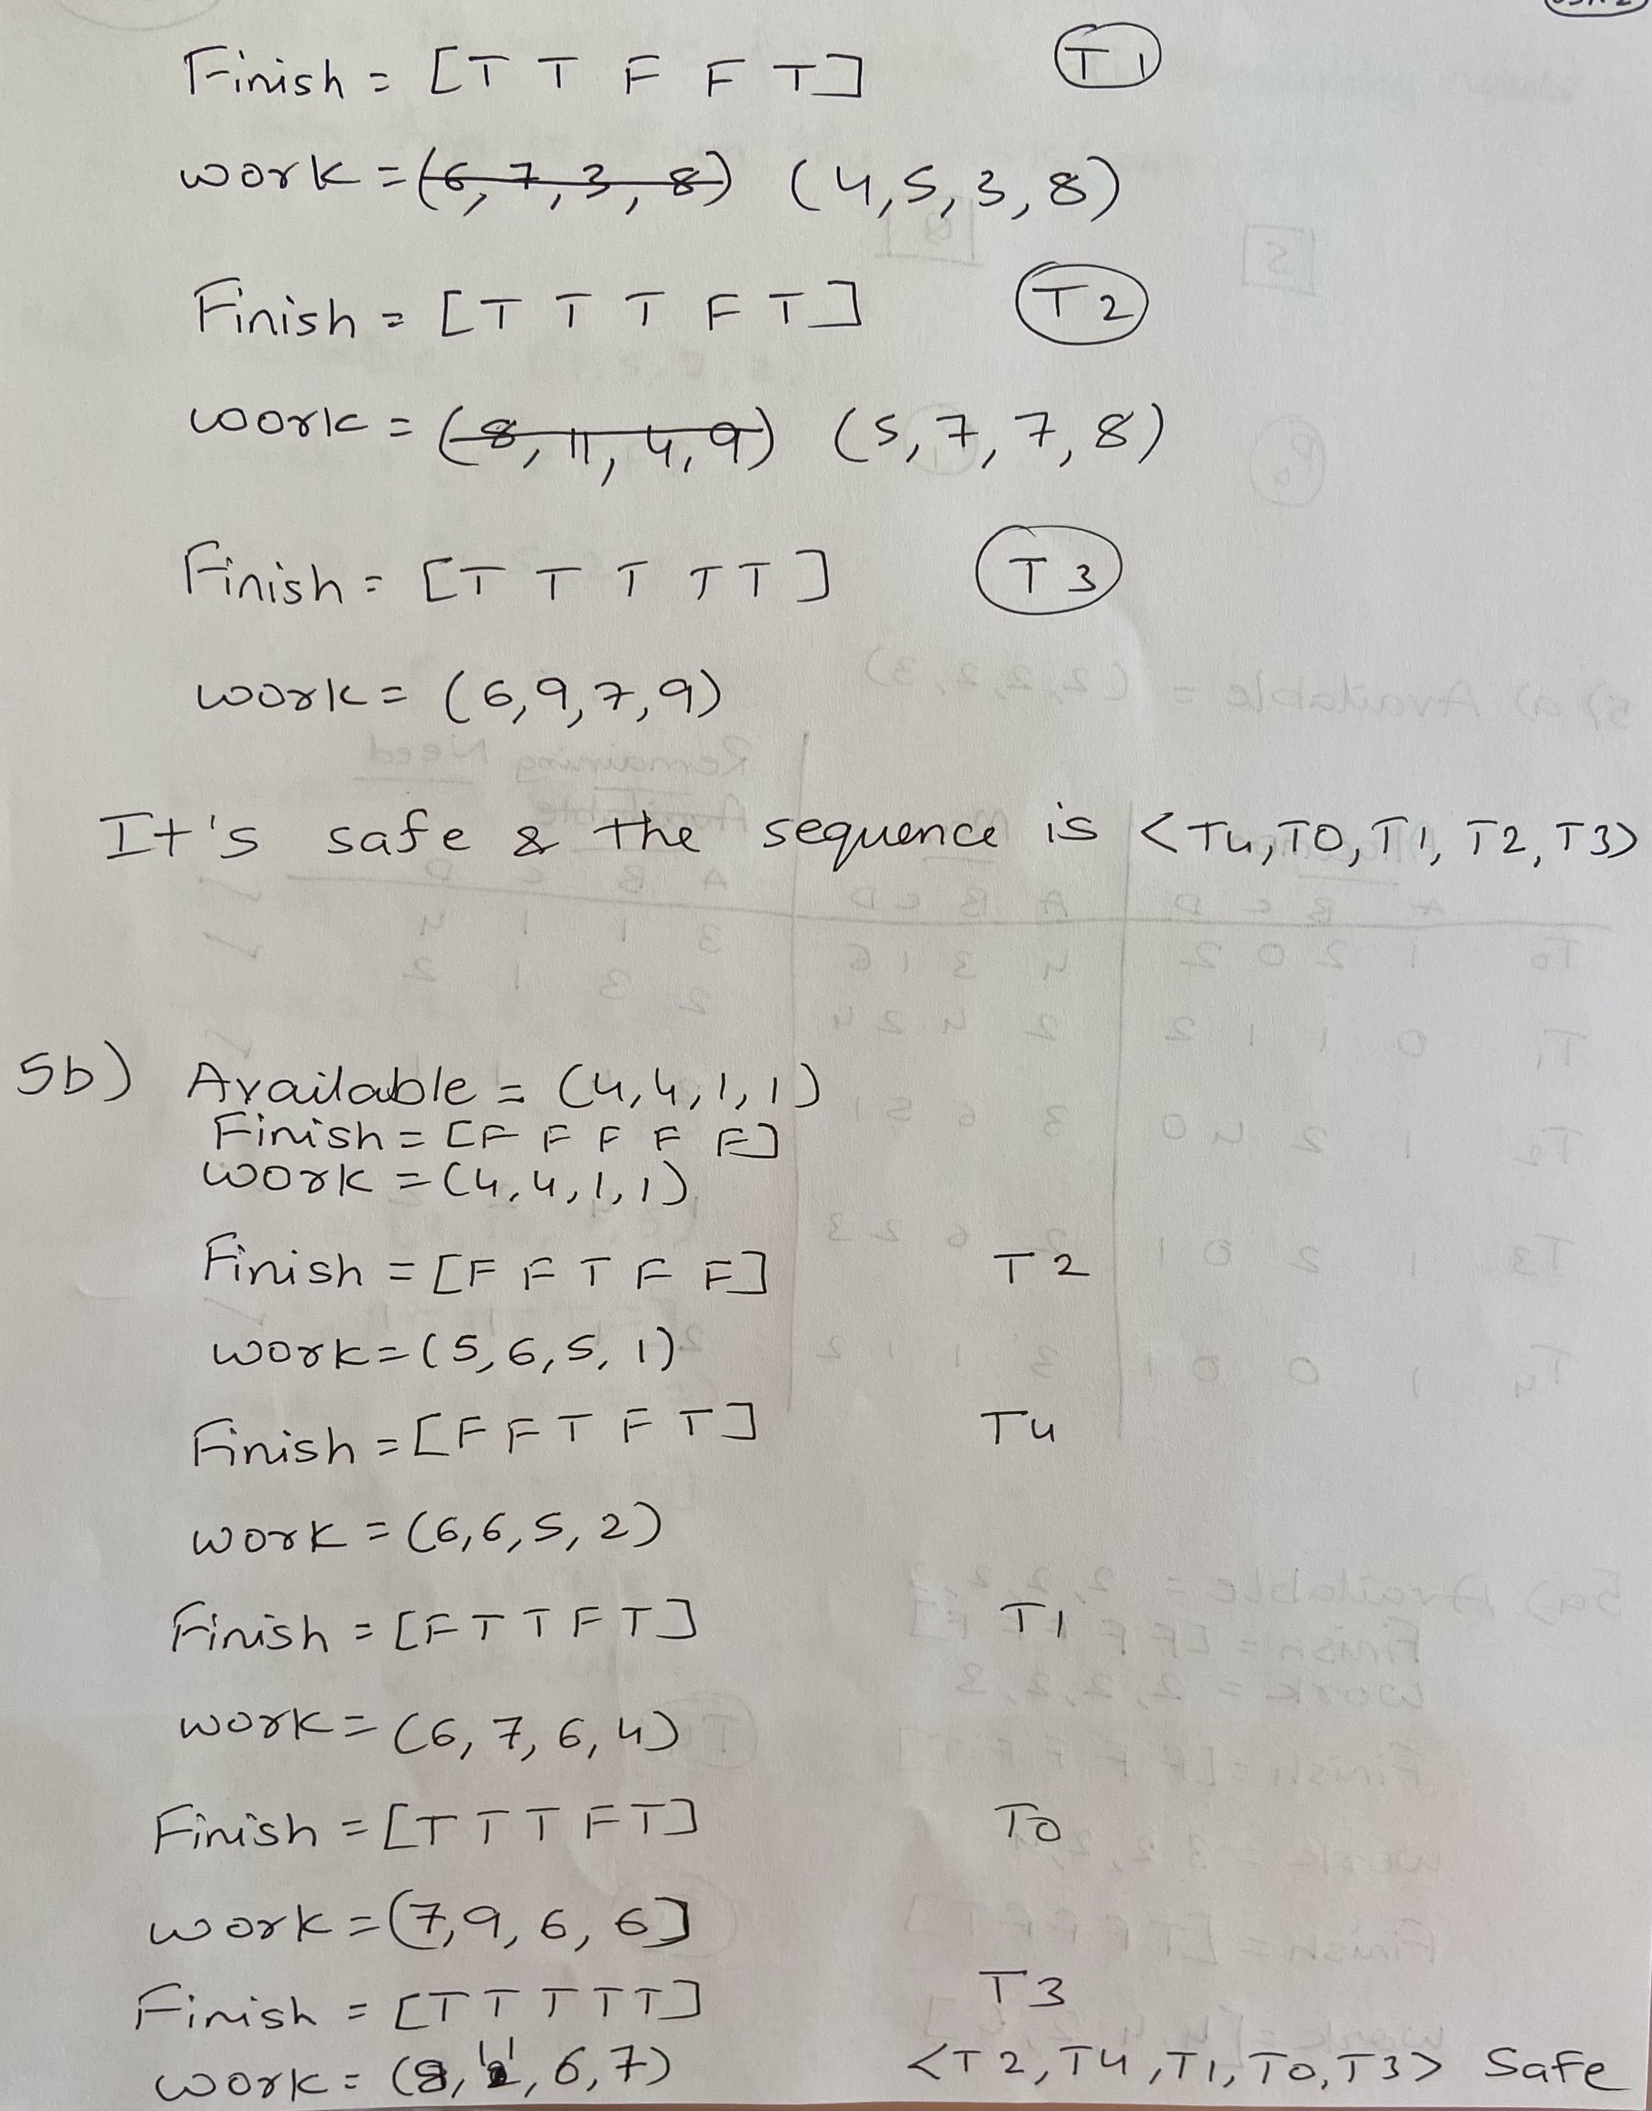 Finish = [T T F F T] T1
work = (6, 7, 3, 8) (4, 5, 3, 8)
Finish = [T T T F T] T2
work = (8, 11, 4, 9) (5, 7, 7, 8)
Finish = [T T T T T] T3
work = (6, 9, 7, 9)
It's safe & the sequence is <T4, T0, T1, T2, T3>
5b) Available = (4, 4, 1, 1)
Finish = [F F F F F]
work = (4, 4, 1, 1)
Finish = [F F T F F] T2
work = (5, 6, 5, 1)
Finish = [F F T F T] T4
work = (6, 6, 5, 2)
Finish = [F T T F T] T1
work = (6, 7, 6, 4)
Finish = [T T T F T] T0
work = (7, 9, 6, 6]
Finish = [T T T T T] T3
work = (8, 11, 6, 7) <T2, T4, T1, T0, T3> Safe